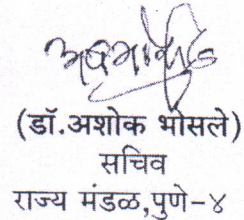 (डॉ.अशोक भोसले)
सचिव
राज्य मंडळ,पुणे-४